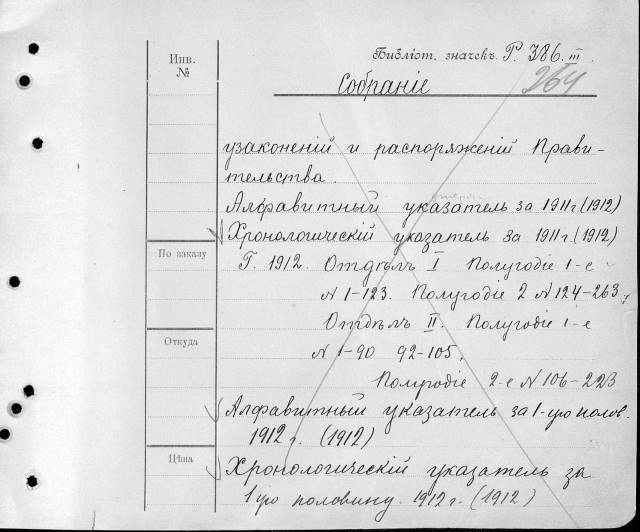 Инв.
№
Библіот. значекъ. Р. 386. III
264
Собраніе
узаконеній и распоряженій Прави-
тельства.
Алфавитный указатель за 1911 г. (1912)
Хронологическій указатель за 1911 г. (1912)
По заказу
Г. 1912. Отдѣлъ I Полугодіе 1-е
N 1-123. Полугодіе 2 N 124-263,
Отдѣлъ II. Полугодіе 1-е
Откуда
N 1-90 92-105,
Полугодіе 2-е N 106-223
Алфавитный указатель за 1-ую полов.
1912 г. (1912)
Цѣна
Хронологическій указатель за
1ую половину 1912 г. (1912)